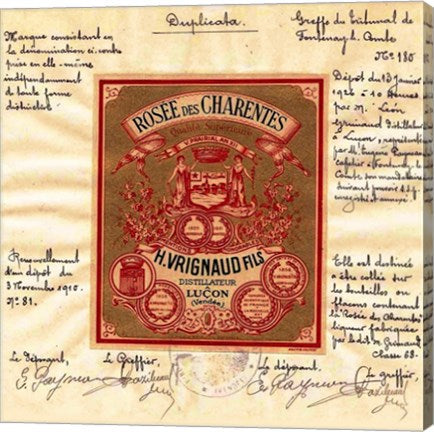 Duplicata.
Greffe du Tribunal de
Fontenay l. Comte
N° 180
Marque consistant en
la dénomination ci-contre
prise en elle-même
indépendamment
de toute forme
distinctive
Dépôt du 13 Janvier
1926 - 10 heures
par M. Léon
Vrignaud distillateur
à Luçon,
par Me Eugène
à Fontenay le
Comte son mandataire
suivant pouvoir s.s.p
enregistré et annexé.
ROSÉE DES CHARENTES
Qualité Supérieure
H. VRIGNAUD FILS
DISTILLATEUR
À
LUÇON
(Vendée)
Renouvellement
d'un dépôt du
3 Novembre 1910.
N° 81.
Elle est destinée
à être collée sur
les bouteilles ou
flacons contenant
la Rosée des Charentes
liqueur fabriquée
par le dit Mr Vrignaud
Classe 68.
Le déposant,
Le Greffier,
Le déposant.
Le greffier,